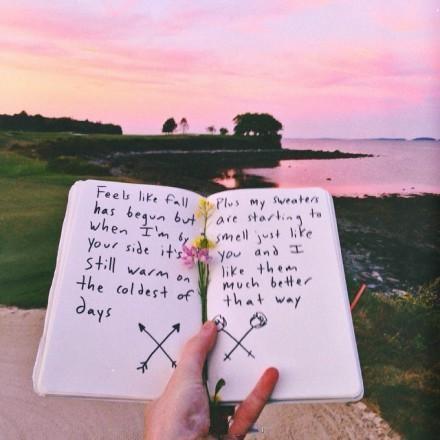 Feels like fall
has begun but
when I'm by
your side it's
still warm on
the coldest of
days
Plus my sweaters
are starting to
smell just like
you and I
like them
much better
that way